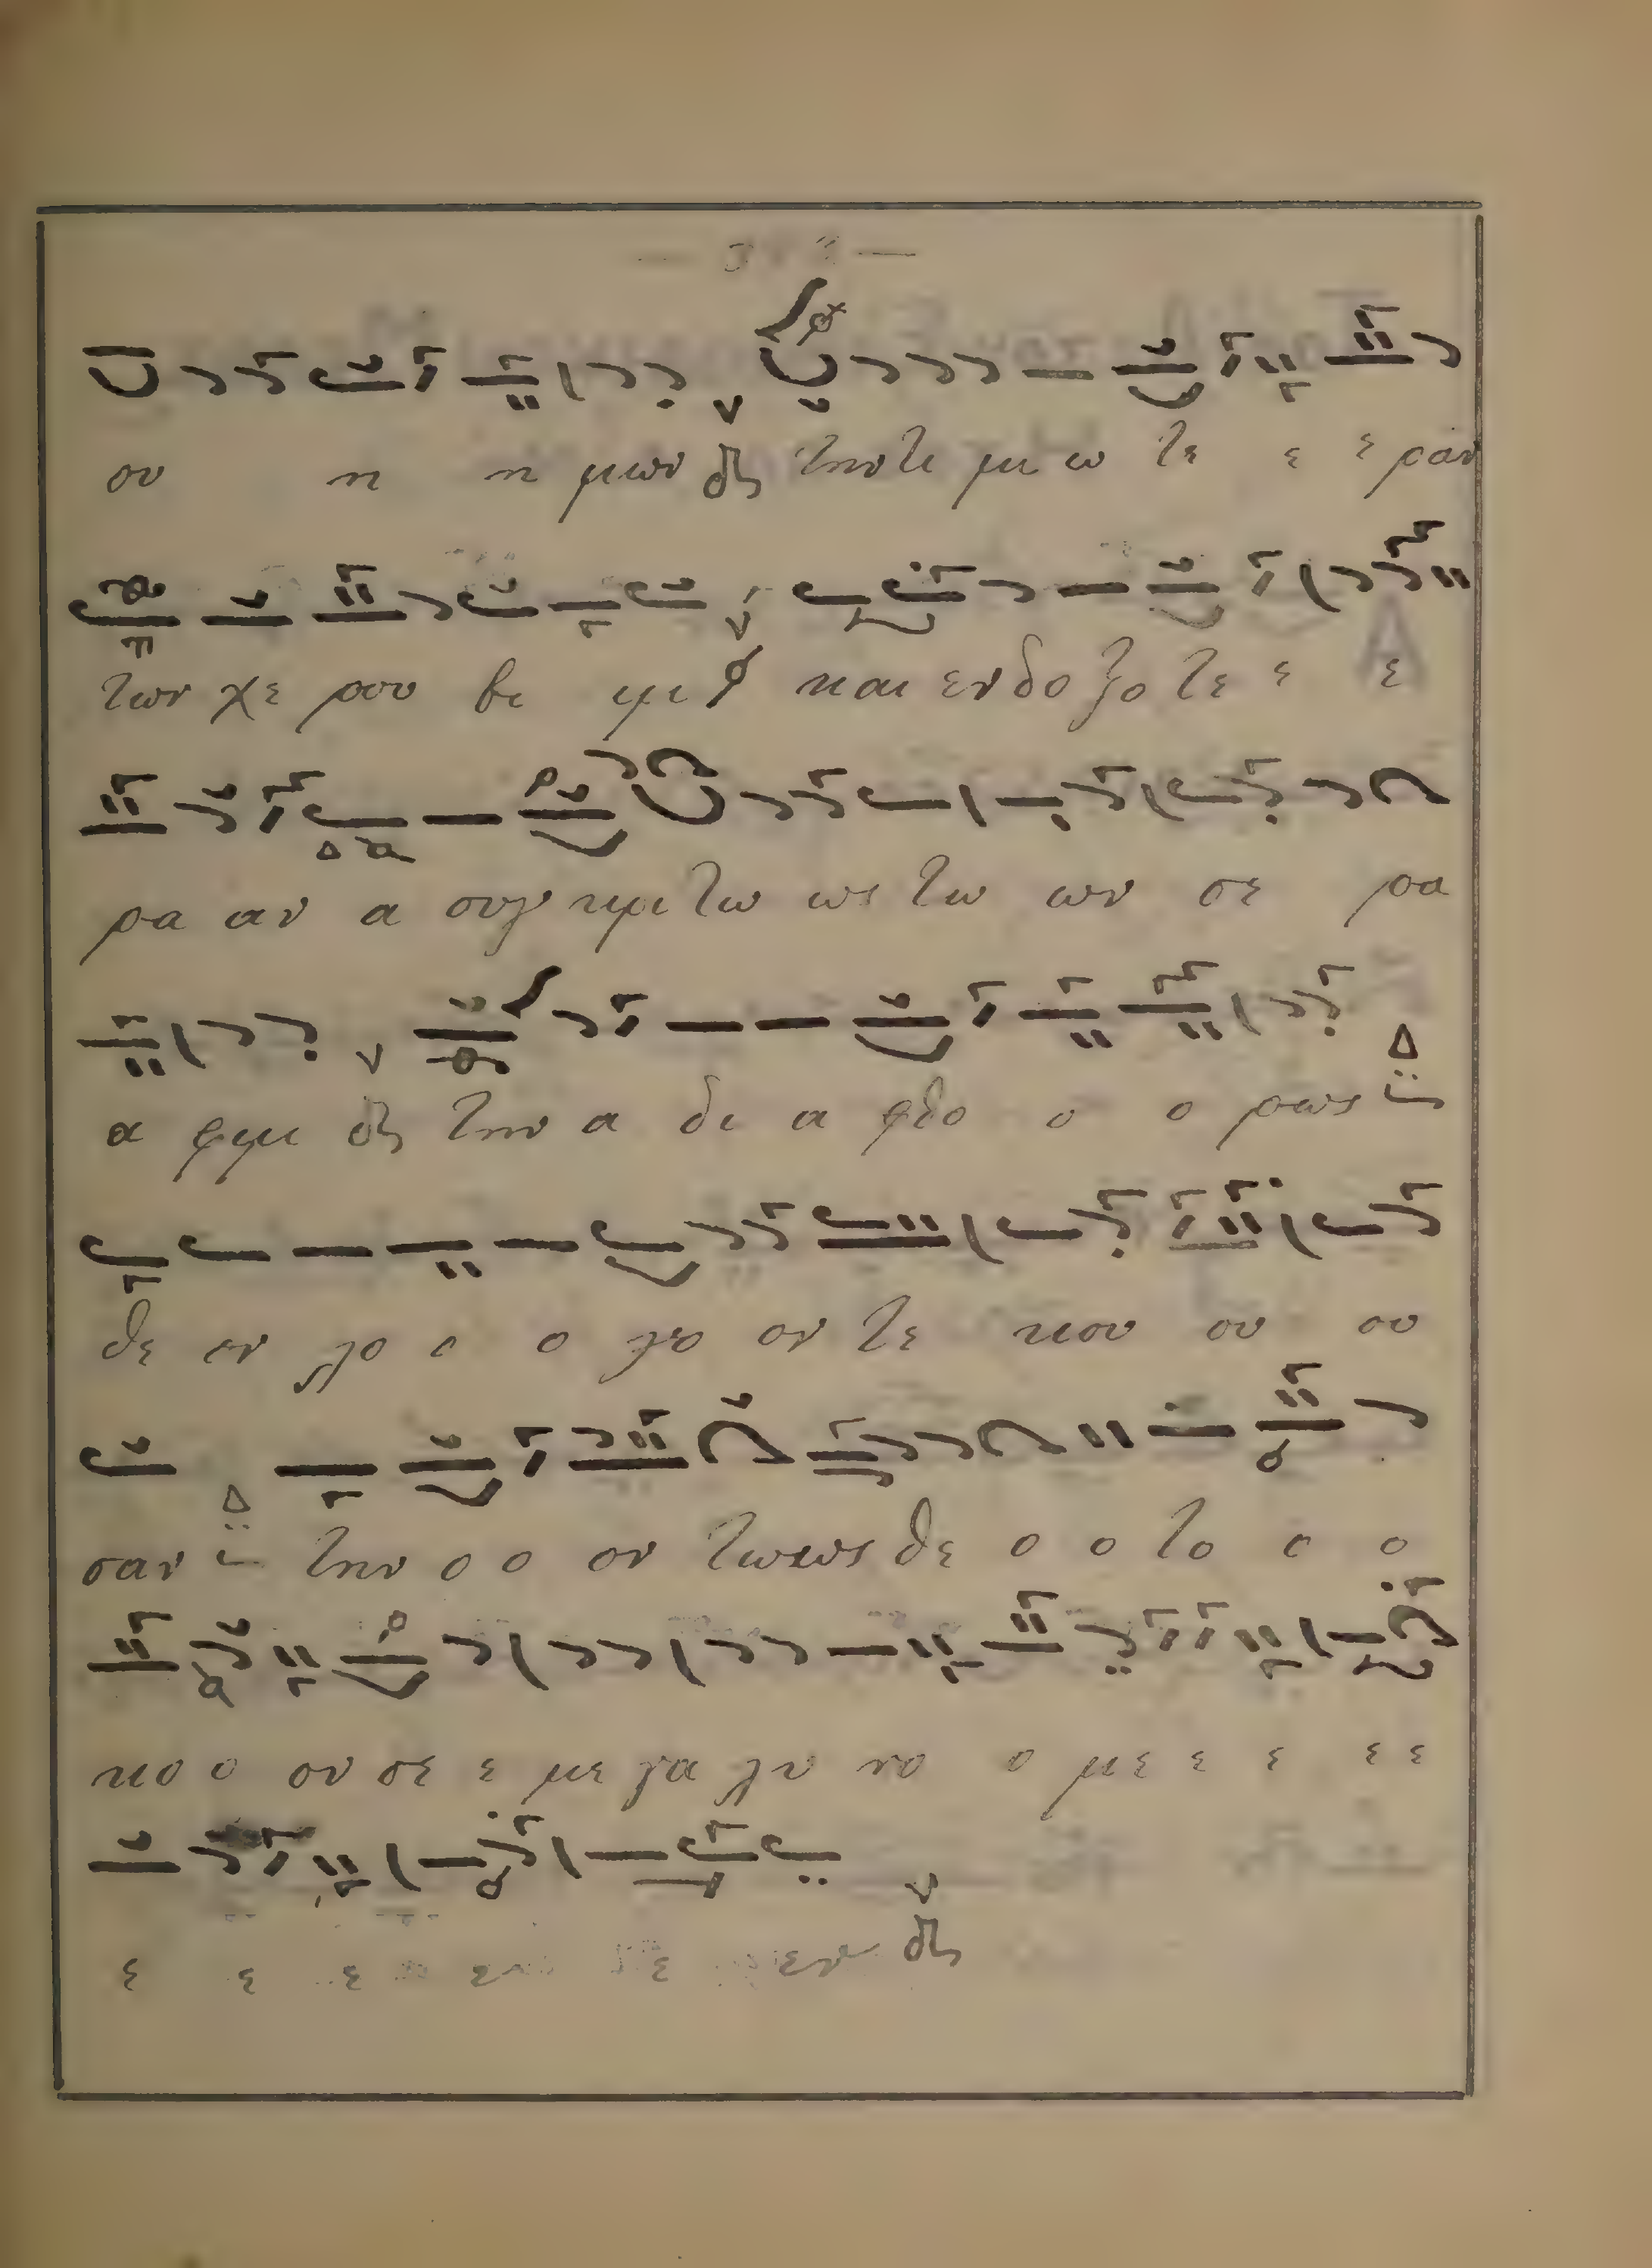 ου η η μων την τι μι ω τε ε ε ραν
των χε ρου βι μι και εν δο ξο τε ε ε
ρα αν α συγ κρι τω ως τω ων σε ρα
α φιμ την α δι α φθο ο ο ρως
θε ον λο ο ο γο ον τε κου ου ου
σαν την ο ο ον τως ως θε ο ο το ο ο
κο ο ον σε ε με γα λυ νο ο με ε ε ε ε
ε ε ε ε ε εν